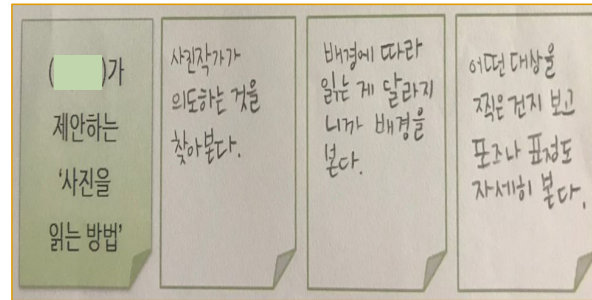 (   )가
제안하는
'사진을
읽는 방법'
사진작가가
의도하는 것을
찾아본다.
배경에 따라
읽는 게 달라지
니까 배경을
본다.
어떤 대상을
찍은 건지 보고
포즈나 표정도
자세히 본다.